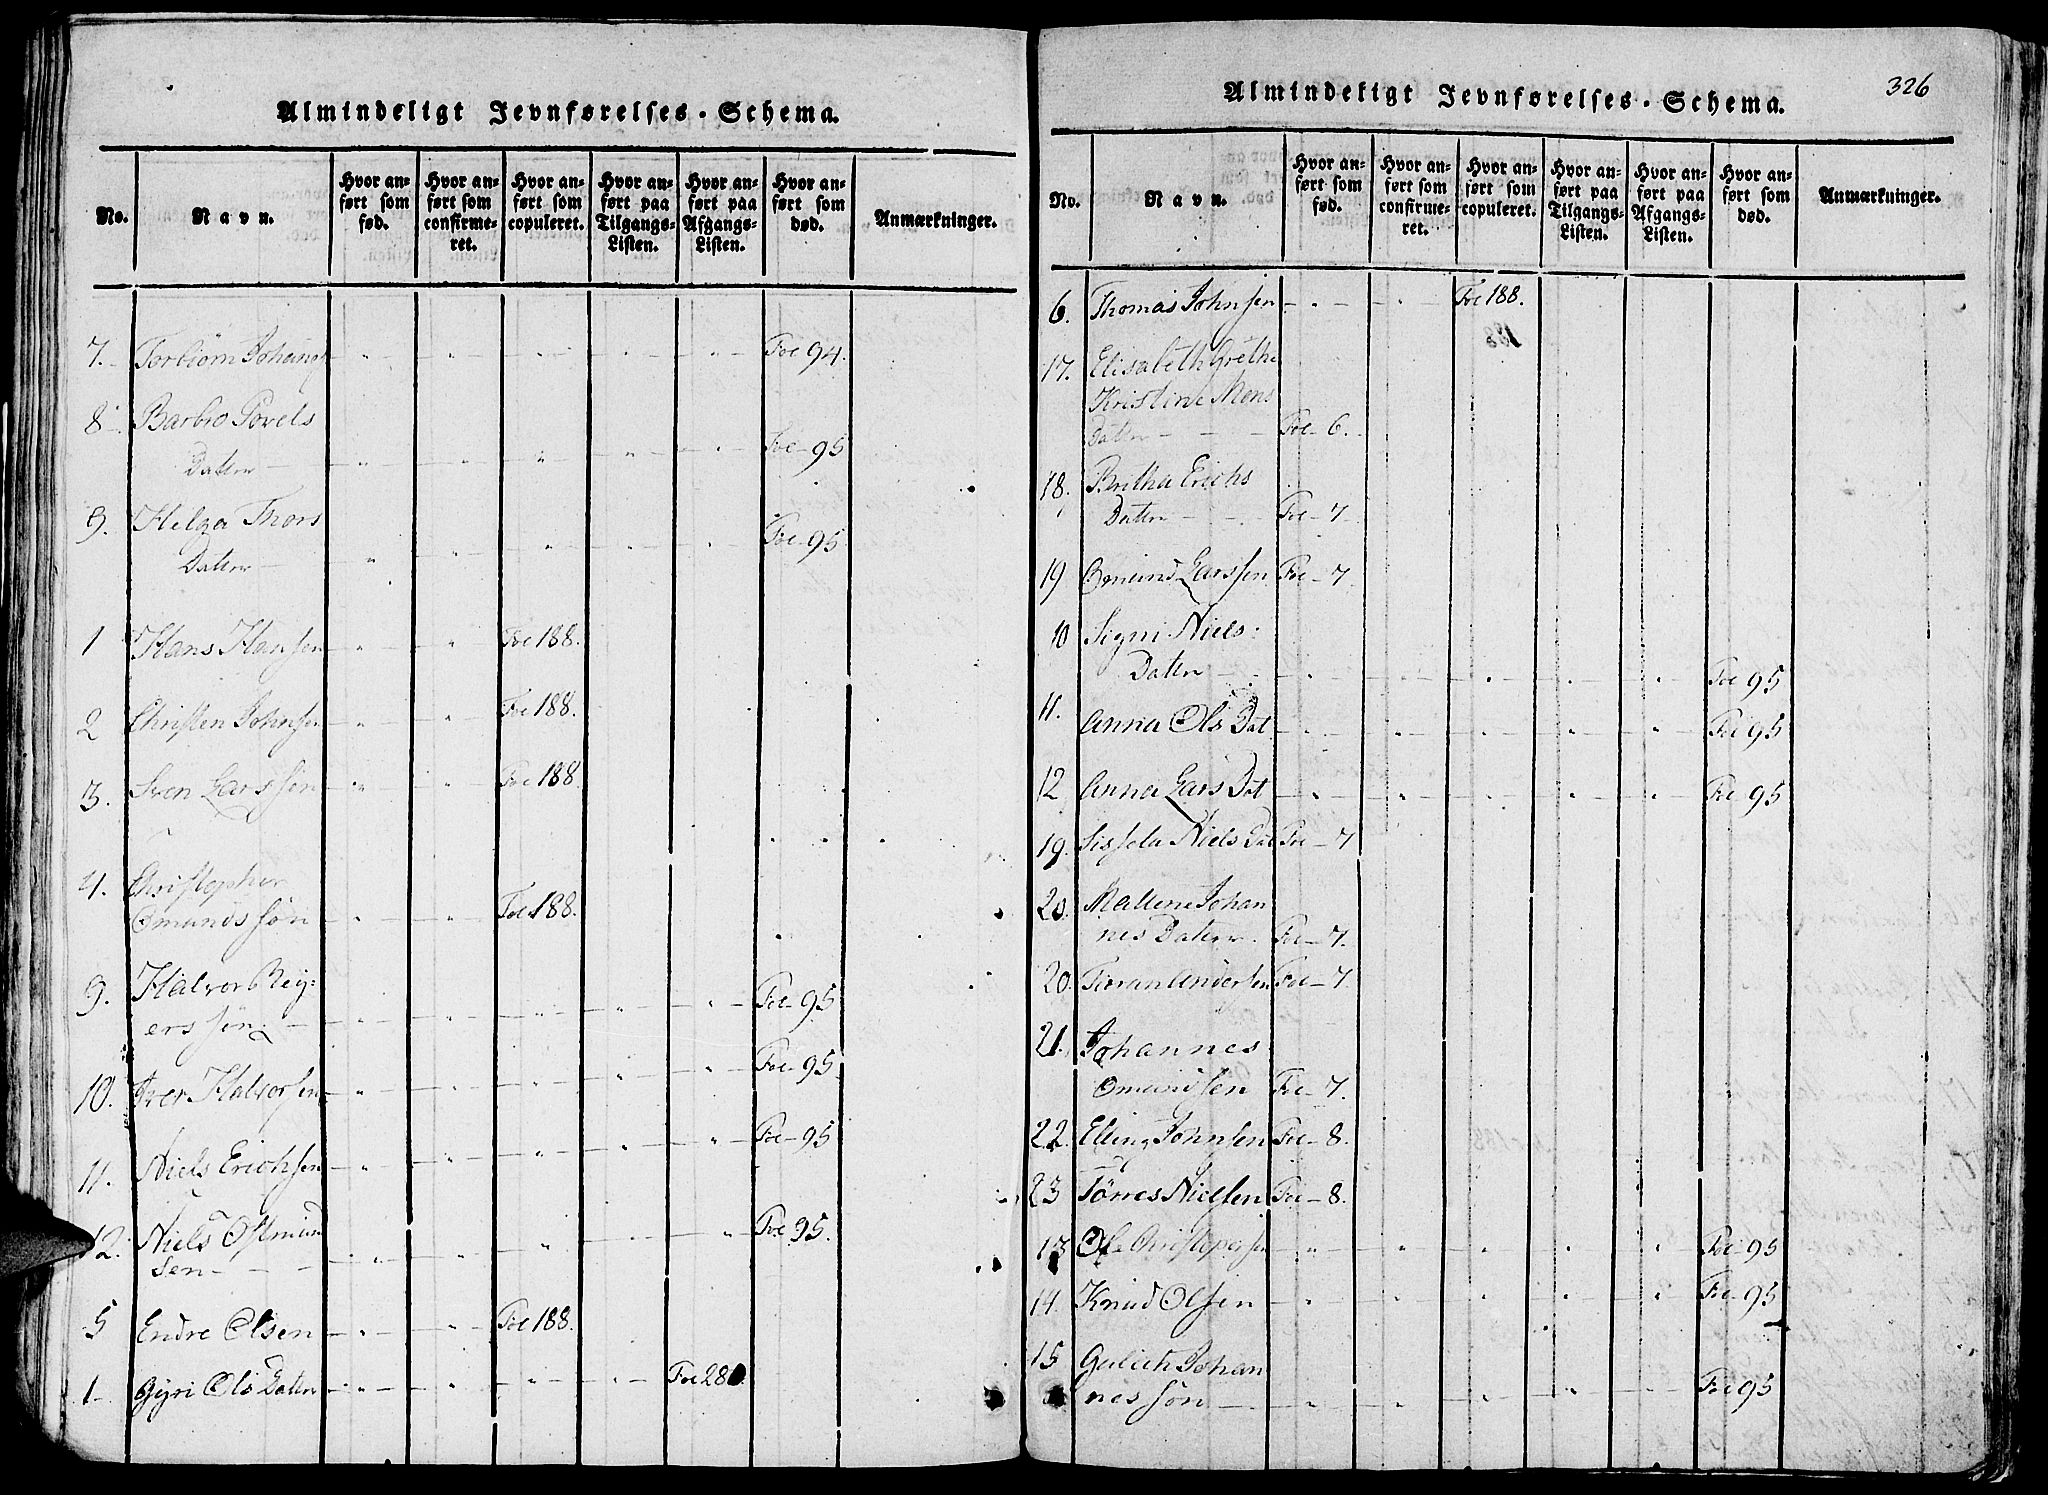 Almindeligt Jevnførelses-Schema.
No.
Navn.
Hvor an-
ført som
fød.
Hvor an-
ført som
confirme-
ret.
Hvor an-
ført som
copuleret.
Hvor an-
ført paa
Tilgangs-
Listen.
Hvor an-
ført paa
Afgangs-
Listen.
Hvor an-
ført som
død.
Anmærkninger.
7. Torbiörn Johans Foe 94.
8. Barbro Povels
Datter Foe 95
9. Helga Thors
Datter Foe 95
1 Hans Hansen Foe 188.
2 Christen Johnsen Foe 188.
3. Sven Larssön Foe 188
4. Christopher
Omundssön Foe 188.
9. Halvor Rey:
erssön Foe 95
10. Iver Halvorsen Foe 95
11. Niels Erichsen Foe 95
12. Niels Ostmun
sen Foe 95.
5 Endre Olsen Foe 188.
1 Gyri Ols Datter Foe 280.
326
Almindeligt Jevnførelses-Schema.
No.
Navn.
Hvor an-
ført som
fød.
Hvor an-
ført som
confirme-
ret.
Hvor an-
ført som
copuleret.
Hvor an-
ført paa
Tilgangs-
Listen.
Hvor an-
ført paa
Afgangs-
Listen.
Hvor an-
ført som
død.
Anmærkninger.
6. Thomas Johnsen Foe 188.
17. Elisabeth Grethe
Kristine Mons
Datter Foe 6.
18. Britha Erichs
Datter Foe 7
19 Omund Larssen Foe 7
10 Signi Niels:
Datter Foe 95
11. Anna Ols Dat Foe 95
12 Anna Lars Dat Foe 95
19. Sissela Niels Dat Foe 7
20. Mallene Johan
nes Datter Foe 7.
20. Andersen Foe 7
21. Johannes
Omundsen Foe 7.
22. Elling Johnsen Foe 8.
23 Törres Nielsen Foe 8.
13 Ole Christopersen Foe 95
14. Knud Olsen Foe 95
15 Johan
nessön Foe 95